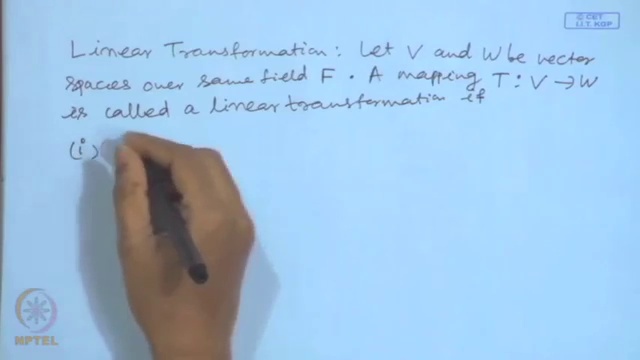 © CET
I.I.T. KGP
Linear Transformation: Let V and W be vector
spaces over same field F. A mapping T: V → W
is called a linear transformation if
(i)
NPTEL